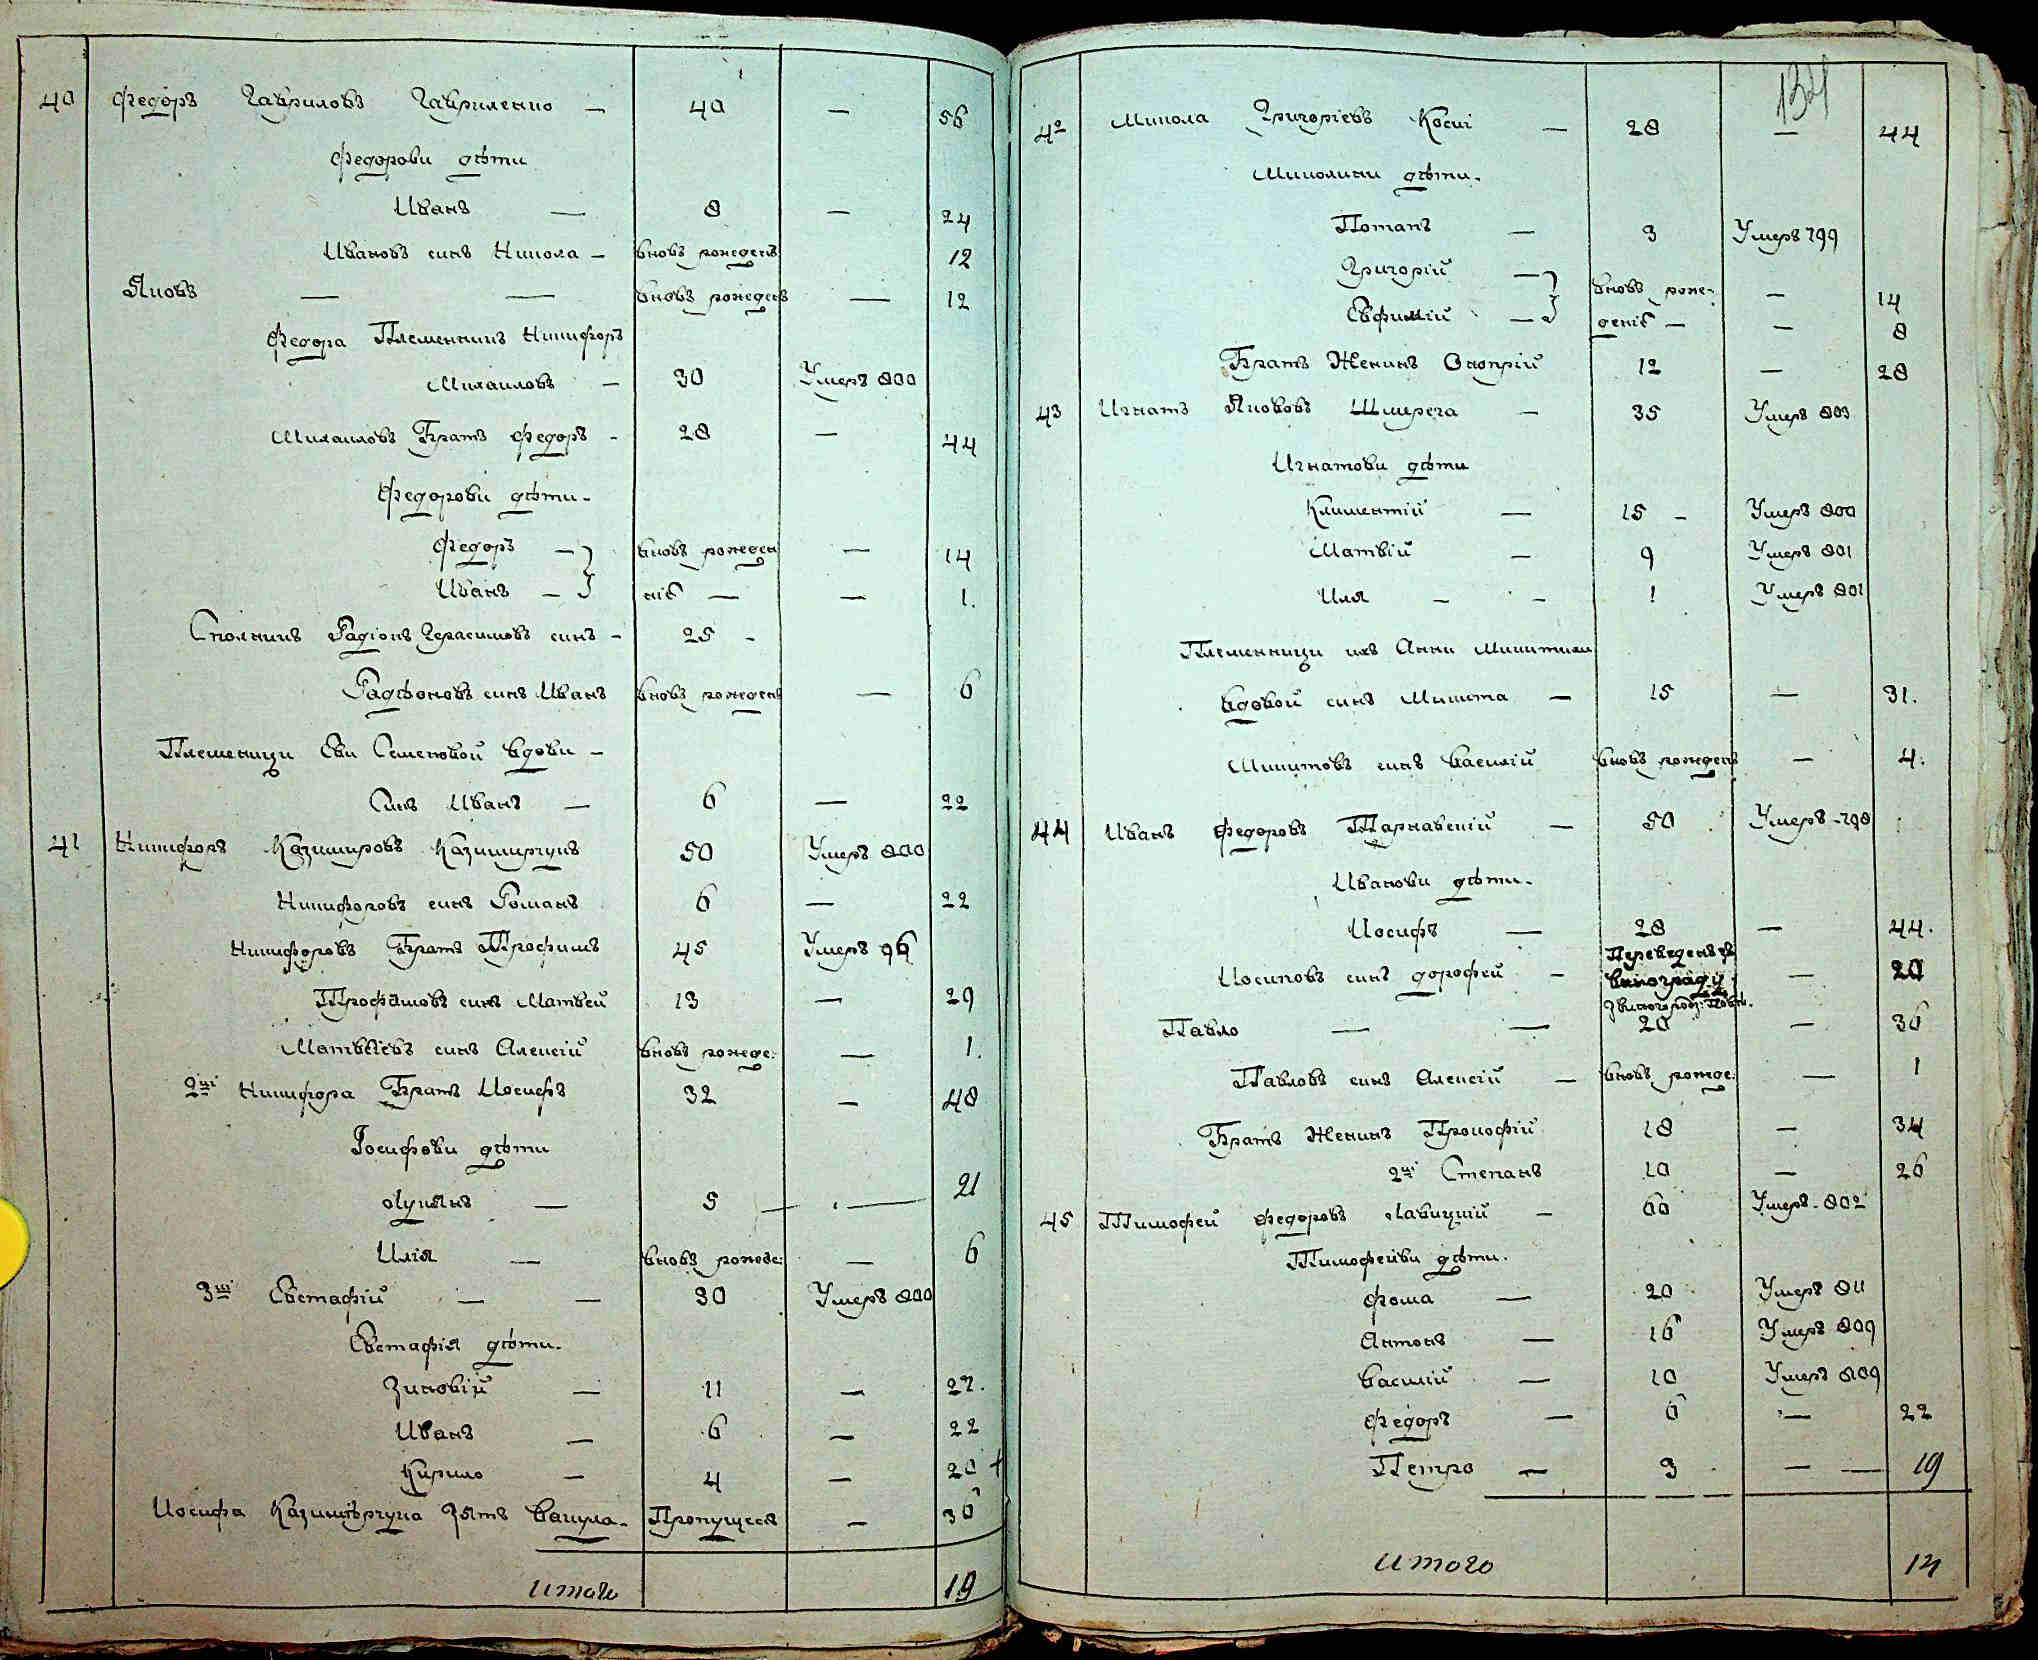 40 Федоръ Гавриловъ Гавриленко — 40 — 56
Федорови дѣти
Иванъ — 8 — 24
Ивановъ синъ Никола — вновь рожденъ 12
Яковъ — — вновь рожденъ — 12
Федора Племенникъ Никифоръ
Михаиловъ — 30 Умеръ 800
Михаиловъ Братъ Федоръ - 28 — 44
Федорови дѣти -
Федоръ — вновь рожден — 14
Иванъ — ніе — — 1.
Радіонъ Герасимовъ синъ - 25 -
Радѣоновъ синъ Иванъ вновь рожденъ — 6
Племенници Еви Семеновой вдови -
Синъ Иванъ — 6 — 22
41 Никифоръ Казимировъ Казимирчукъ 50 Умеръ 800
Никифоровъ синъ Романъ 6 — 22
Никифоровъ Братъ Трофимъ 45 Умеръ 96
Трофимовъ синъ Матвей 13 — 29
Матвѣевъ синъ Алексій вновь рожде: — 1.
2й Никифора Братъ Иосифъ 32 — 48
Іосифови дѣти
Лукянъ — 5 — . — 21
Илія — вновь рожде: — 6
3й Евстафій — — 30 Умеръ 800
Евстафія дѣти.
Зиновій — 11 — 27.
Иванъ — 6 — 22
Кирило — 4 — 20 +
Иосифа Казимѣрчука Зять Вакула. Пропущенъ — 36
Итого 19
134
42 Микола Григоріевъ Косій — 28 — 44
Миколини дѣти.
Потапъ — 3 Умеръ 799
Григорій — вновь рож- — 14
Евфимій — деніе — — 8
Братъ Женинъ Онопрій 12 — 28
43 Игнатъ Якововъ Шмирега — 35 Умеръ 803
Игнатови дѣти
Климентій — 15 - Умеръ 800
Матвій — 9 Умеръ 801
Иля — - 1 Умеръ 801
Племенници ихъ Анни Микитихи
вдовой синъ Микита — 15 — 31.
Микитовъ синъ Василій вновь рожденъ — 4.
44 Иванъ Федоровъ Тарнавскій — 50 Умеръ - 798
Иванови дѣти.
Иосифъ — 28 — 44.
Иосиповъ синъ Дорофей — Переведенъ въ Виноград — 20
Звиногород: Повѣ.
Павло — — 20 — 36
Павловъ синъ Алексій — вновь рожде: — 1
Братъ Женинъ Прокофій 18 — 34
2й Степанъ 10 — 26
45 Тимофей Федоровъ Лавицкій — 60 Умеръ - 802
Тимофейви дѣти.
Фома — 20 Умеръ 811
Антонъ — 16 Умеръ 809
Василій — 10 Умеръ 809
Федоръ — 6 — 22
Петро — 3 — — 19
Итого 14